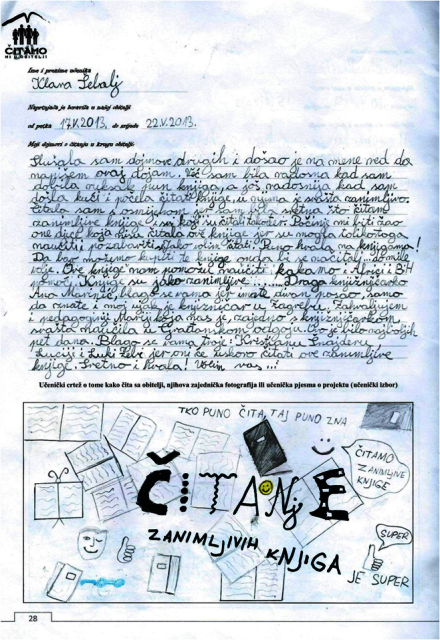 ČITAMO
MI U OBITELJI
Ime i prezime učenika
Klara Šebalj
Naprtnjača je boravila u našoj obitelji
od petka 17.V.2013. do srijede 22.V.2013.
Moji dojmovi o čitanju u krugu obitelji:
Slušala sam dojmove drugih i došao je na mene red da
napišem ovaj dojam. Već sam bila radosna kad sam
dobila ruksak pun knjiga, a još radosnija kad sam
došla kući i počela čitati knjige, u njima je svašta zanimljivo.
Čitala sam s osmijehom jer sam bila sretna što čitam
zanimljive knjige
one djece koja nisu čitala ove knjige jer se mogla toga
naučiti i pozabaviti. Jako volim čitati. Puno hvala na knjigama!
Da bar možemo kupiti te knjige onda bi se
Ove knjige nam pomožu naučiti, kako i Africi i BiH
pomoći. Knjige su jako zanimljive. Draga knjižničarko
blago se vama jer imate divan posao, samo
da znate i moj ujak je knjižničar u Zagrebu. Zahvaljujem
i pedagoginji Mariji koja nas je zajedno s knjižničarkom
svašta naučila u Građanskom odgoju. Ovo je bilo najboljih
pet dana. Blago se vama troje: Kristijanu Šnajderu,
Luciji i Luki jer oni će uskoro čitati ove zanimljive
knjige. Sretno i hvala! Volim vas...!
Učenički crtež o tome kako čita sa obitelji, njihova zajednička fotografija ili učenička pjesma o projektu (učenički izbor)
TKO PUNO ČITA, TAJ PUNO ZNA
ČITAMO
ZANIMLJIVE
KNJIGE
ČITANJE
ZANIMLJIVIH KNJIGA
SUPER
JE SUPER
28